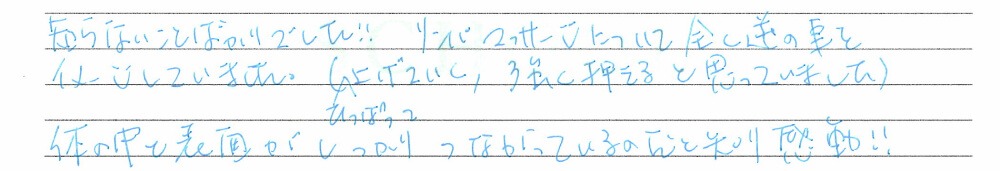 知らないことばかりでした!! リンパマッサージについて全く逆の事を
イメージしていました。(上げていく, 強く押えると思っていました)
ひっぱって
体の中と表面がしっかりつながっているのだと知り感動!!